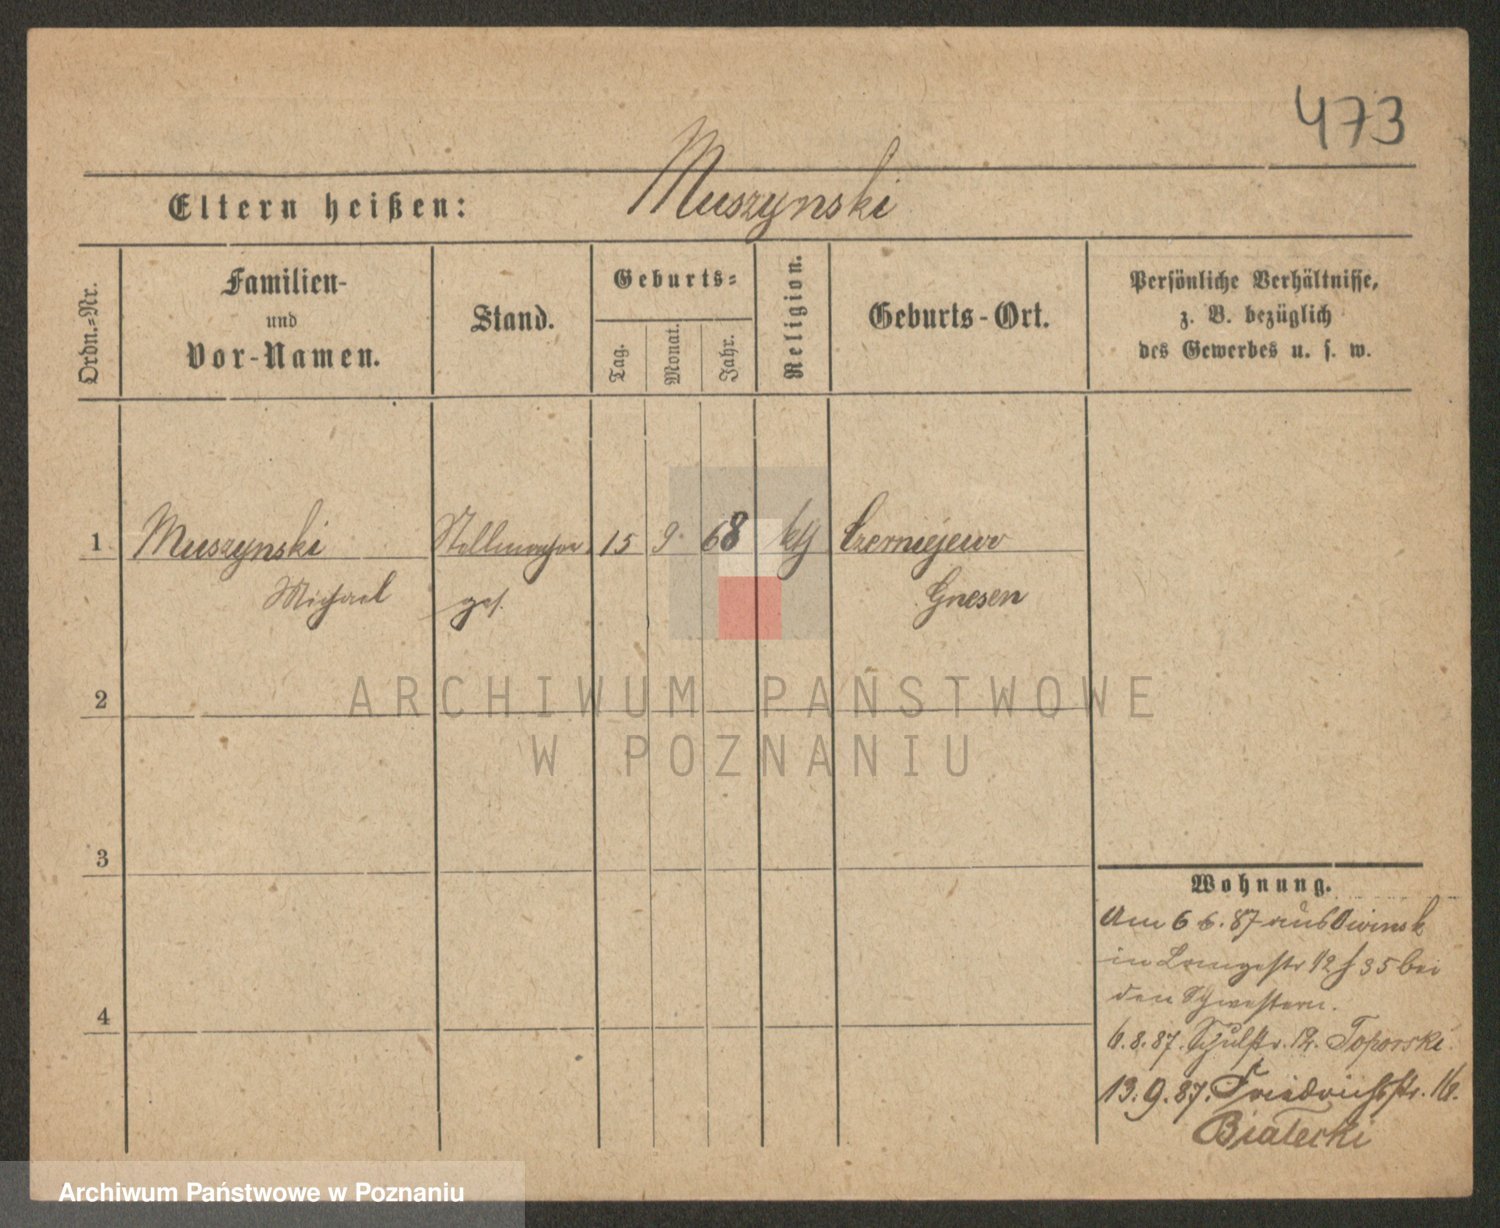 473
Muszynski
Eltern heißen:
Ordn.-Nr.
Familien-
und
Vor-Namen.
Stand.
Geburts-
Tag.
Monat.
Jahr.
Religion.
Geburts-Ort.
Persönliche Verhältnisse,
z. B. bezüglich
des Gewerbes u. s. w.
1 Muszynski Stellmacher 15 9 68 kth Czerniejewo
Michael ges. Gnesen
2
3
4
Wohnung.
Am 6 6. 87 aus Owinsk
in Langestr 12 35 bei
den Schwestern.
6.8.87. Schulstr. 12. Toporski.
13.9.87. Friedrichstr.
Bialecki
ARCHIWUM PAŃSTWOWE
W POZNANIU
Archiwum Państwowe w Poznaniu